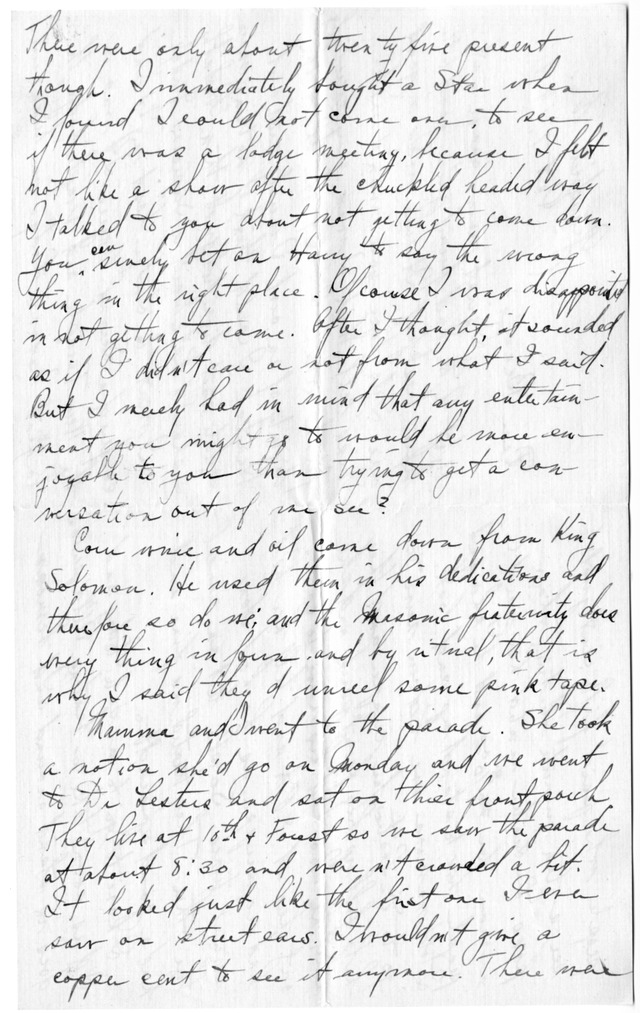 There were only about twenty five present
though. I immediately bought a Star when
I found I could not come over, to see
if there was a lodge meeting, because I felt
not like a show after the chuckled headed way
I talked to you about not getting to come down.
You can surely bet on Harry to say the wrong
thing in the right place. Of course I was disappointed
in not getting to come. After I thought, it sounded
as if I didn't care or not from what I said.
But I merely had in mind that any entertain-
ment you might go to would be more en-
joyable to you than trying to get a con-
versation out of me see?
Corn wine and oil come down from King
Solomon. He used them in his dedications and
therefore so do we; and the Masonic fraternity does
every thing in form and by ritual, that is
why I said they'd unreel some pink tape.
Mamma and I went to the parade. She took
a notion she'd go on Monday and we went
to Dr Lesters and sat on their front porch
They live at 10th & Forest so we saw the parade
at about 8:30 and were n't crowded a bit.
It looked just like the first one I ever
saw on street cars. I wouldn't give a
copper cent to see it anymore. There were